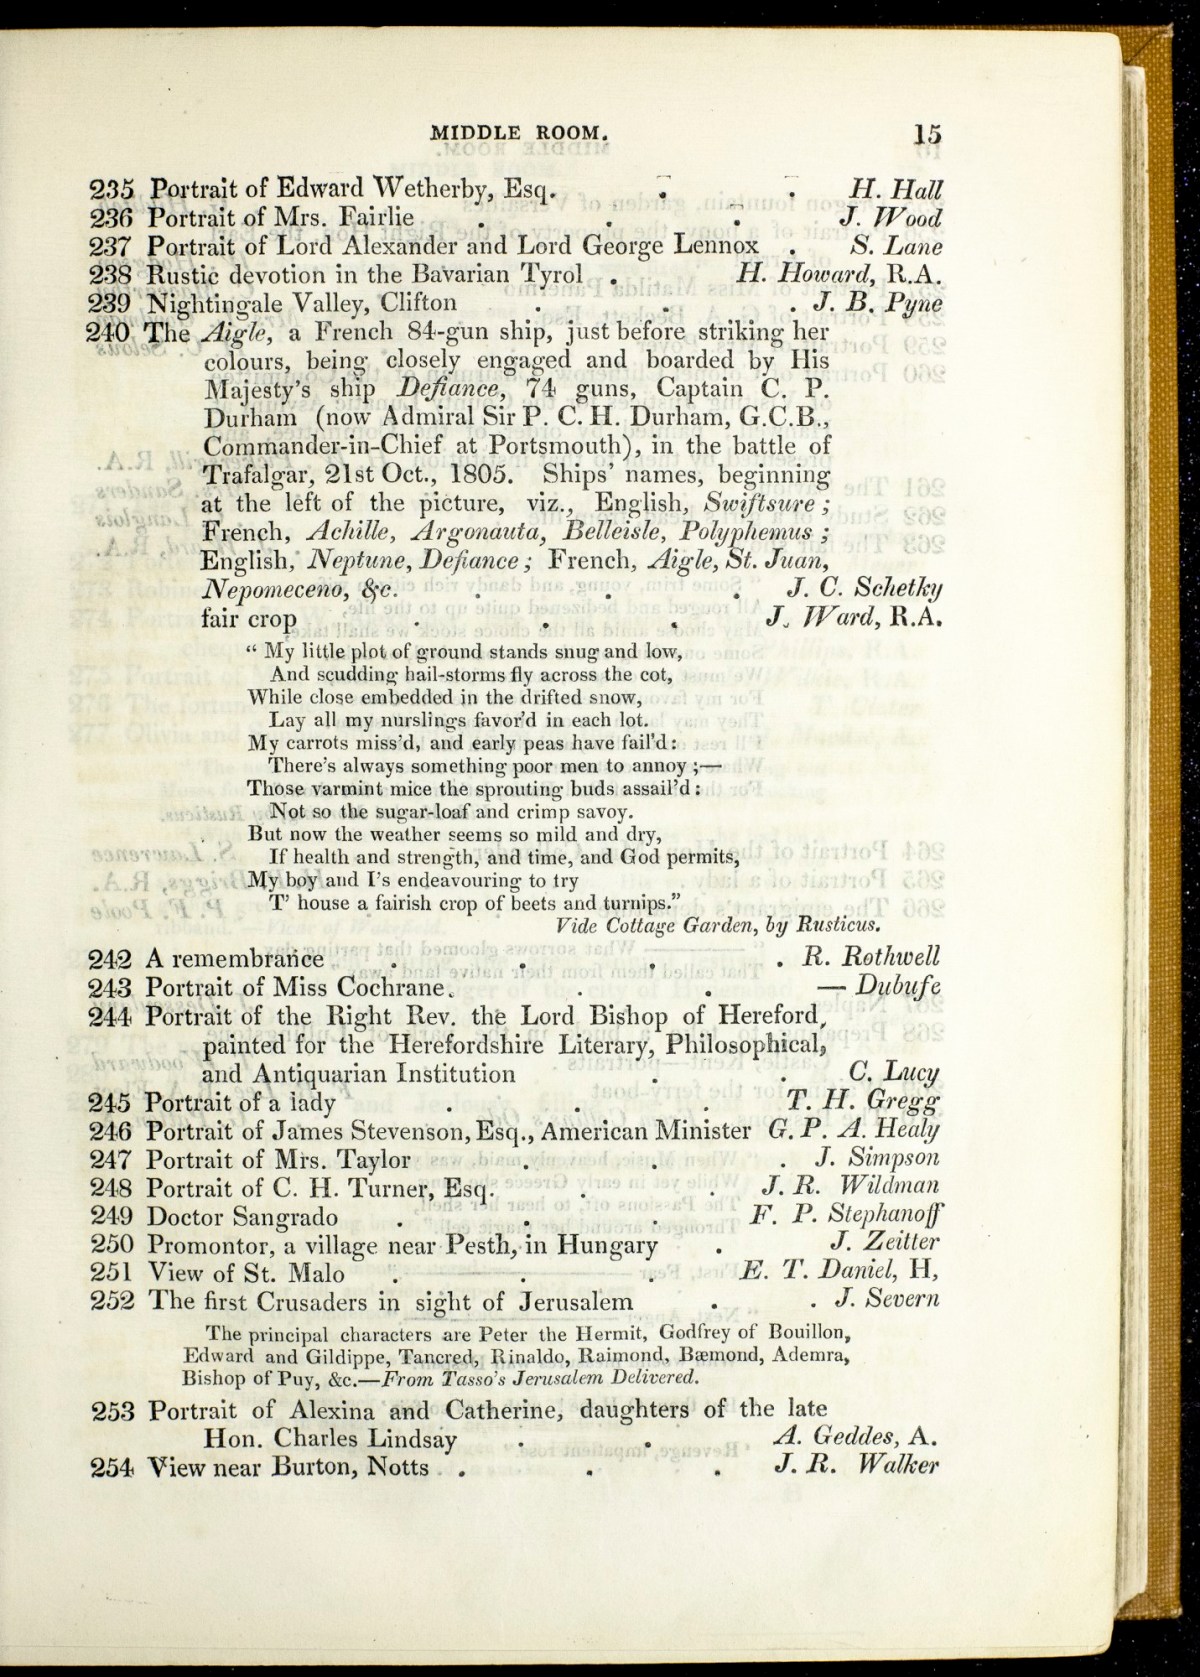 MIDDLE ROOM. 15
235 Portrait of Edward Wetherby, Esq. . . H. Hall
236 Portrait of Mrs. Fairlie . . . J. Wood
237 Portrait of Lord Alexander and Lord George Lennox . S. Lane
238 Rustic devotion in the Bavarian Tyrol . H. Howard, R.A.
239 Nightingale Valley, Clifton . . . J. B. Pyne
240 The Aigle, a French 84-gun ship, just before striking her
colours, being closely engaged and boarded by His
Majesty's ship Defiance, 74 guns, Captain C. P.
Durham (now Admiral Sir P. C. H. Durham, G.C.B.,
Commander-in-Chief at Portsmouth), in the battle of
Trafalgar, 21st Oct., 1805. Ships' names, beginning
at the left of the picture, viz., English, Swiftsure;
French, Achille, Argonauta, Belleisle, Polyphemus;
English, Neptune, Defiance; French, Aigle, St. Juan,
Nepomeceno, &c. . . . J. C. Schetky
fair crop . . . J. Ward, R.A.
" My little plot of ground stands snug and low,
And scudding hail-storms fly across the cot,
While close embedded in the drifted snow,
Lay all my nurslings favor'd in each lot.
My carrots miss'd, and early peas have fail'd:
There's always something poor men to annoy;—
Those varmint mice the sprouting buds assail'd:
Not so the sugar-loaf and crimp savoy.
But now the weather seems so mild and dry,
If health and strength, and time, and God permits,
My boy and I's endeavouring to try
T' house a fairish crop of beets and turnips."
Vide Cottage Garden, by Rusticus.
242 A remembrance . . . . R. Rothwell
243 Portrait of Miss Cochrane . . . — Dubufe
244 Portrait of the Right Rev. the Lord Bishop of Hereford,
painted for the Herefordshire Literary, Philosophical,
and Antiquarian Institution . . C. Lucy
245 Portrait of a lady . . . T. H. Gregg
246 Portrait of James Stevenson, Esq., American Minister G. P. A. Healy
247 Portrait of Mrs. Taylor . . . J. Simpson
248 Portrait of C. H. Turner, Esq. . . J. R. Wildman
249 Doctor Sangrado . . . F. P. Stephanoff
250 Promontor, a village near Pesth, in Hungary . J. Zeitter
251 View of St. Malo . . . E. T. Daniel, H,
252 The first Crusaders in sight of Jerusalem . . J. Severn
The principal characters are Peter the Hermit, Godfrey of Bouillon,
Edward and Gildippe, Tancred, Rinaldo, Raimond, Bæmond, Ademra,
Bishop of Puy, &c.—From Tasso's Jerusalem Delivered.
253 Portrait of Alexina and Catherine, daughters of the late
Hon. Charles Lindsay . . A. Geddes, A.
254 View near Burton, Notts . . . J. R. Walker